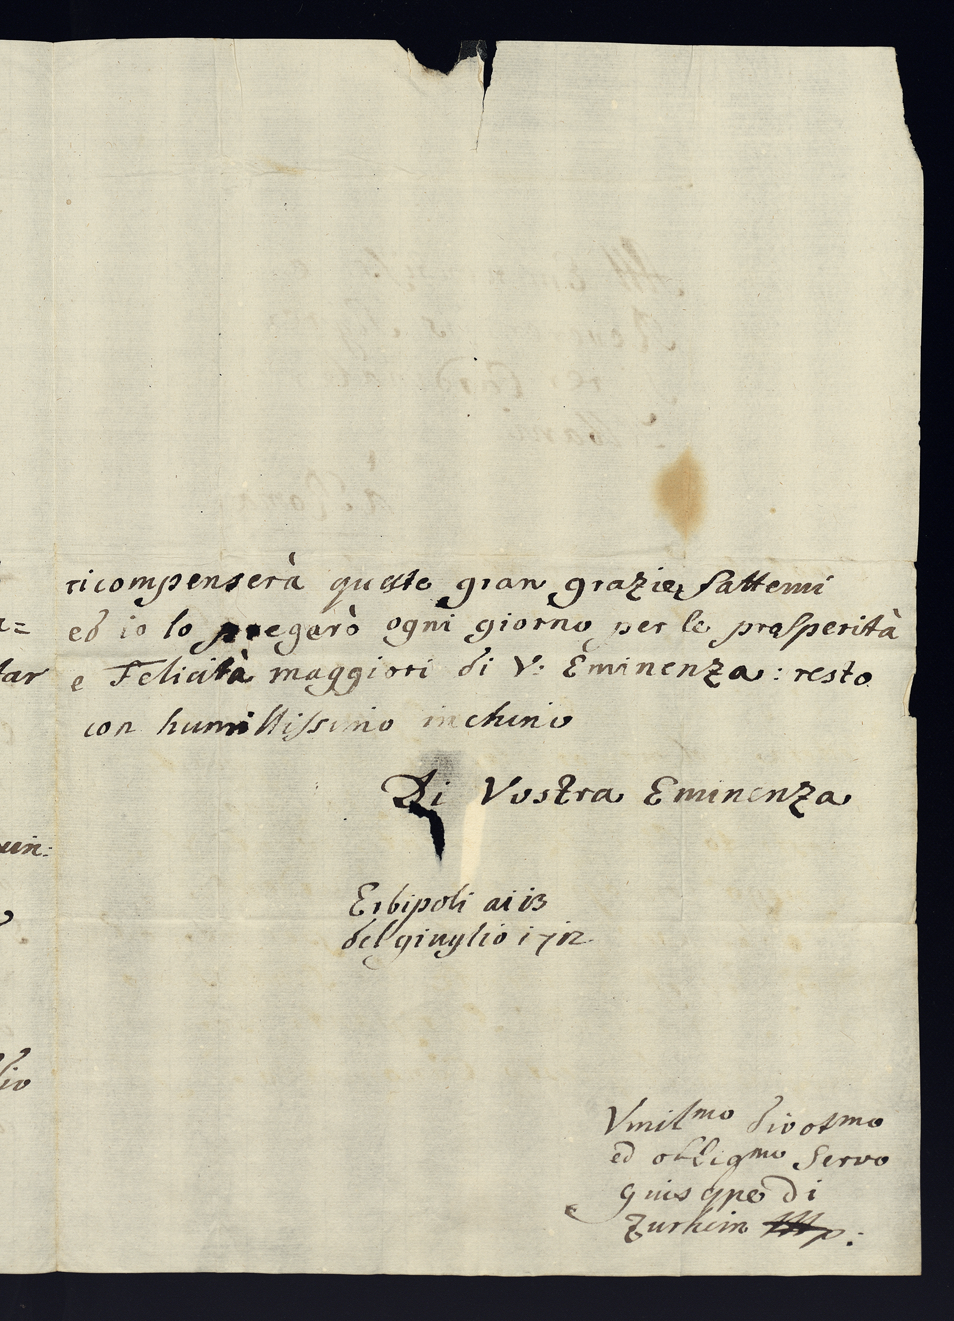 ricompenserà queste gran grazie fattemi
ed io lo pregarò ogni giorno per le prosperità
e Felicità maggiori di V: Eminenza: resto
con humillissimo inchino
Di Vostra Eminenza
Erbipoli ai 13
del giuglio 1712
Vmilmo divotmo
ed obligmo Servo
guisepe di
Zurhein